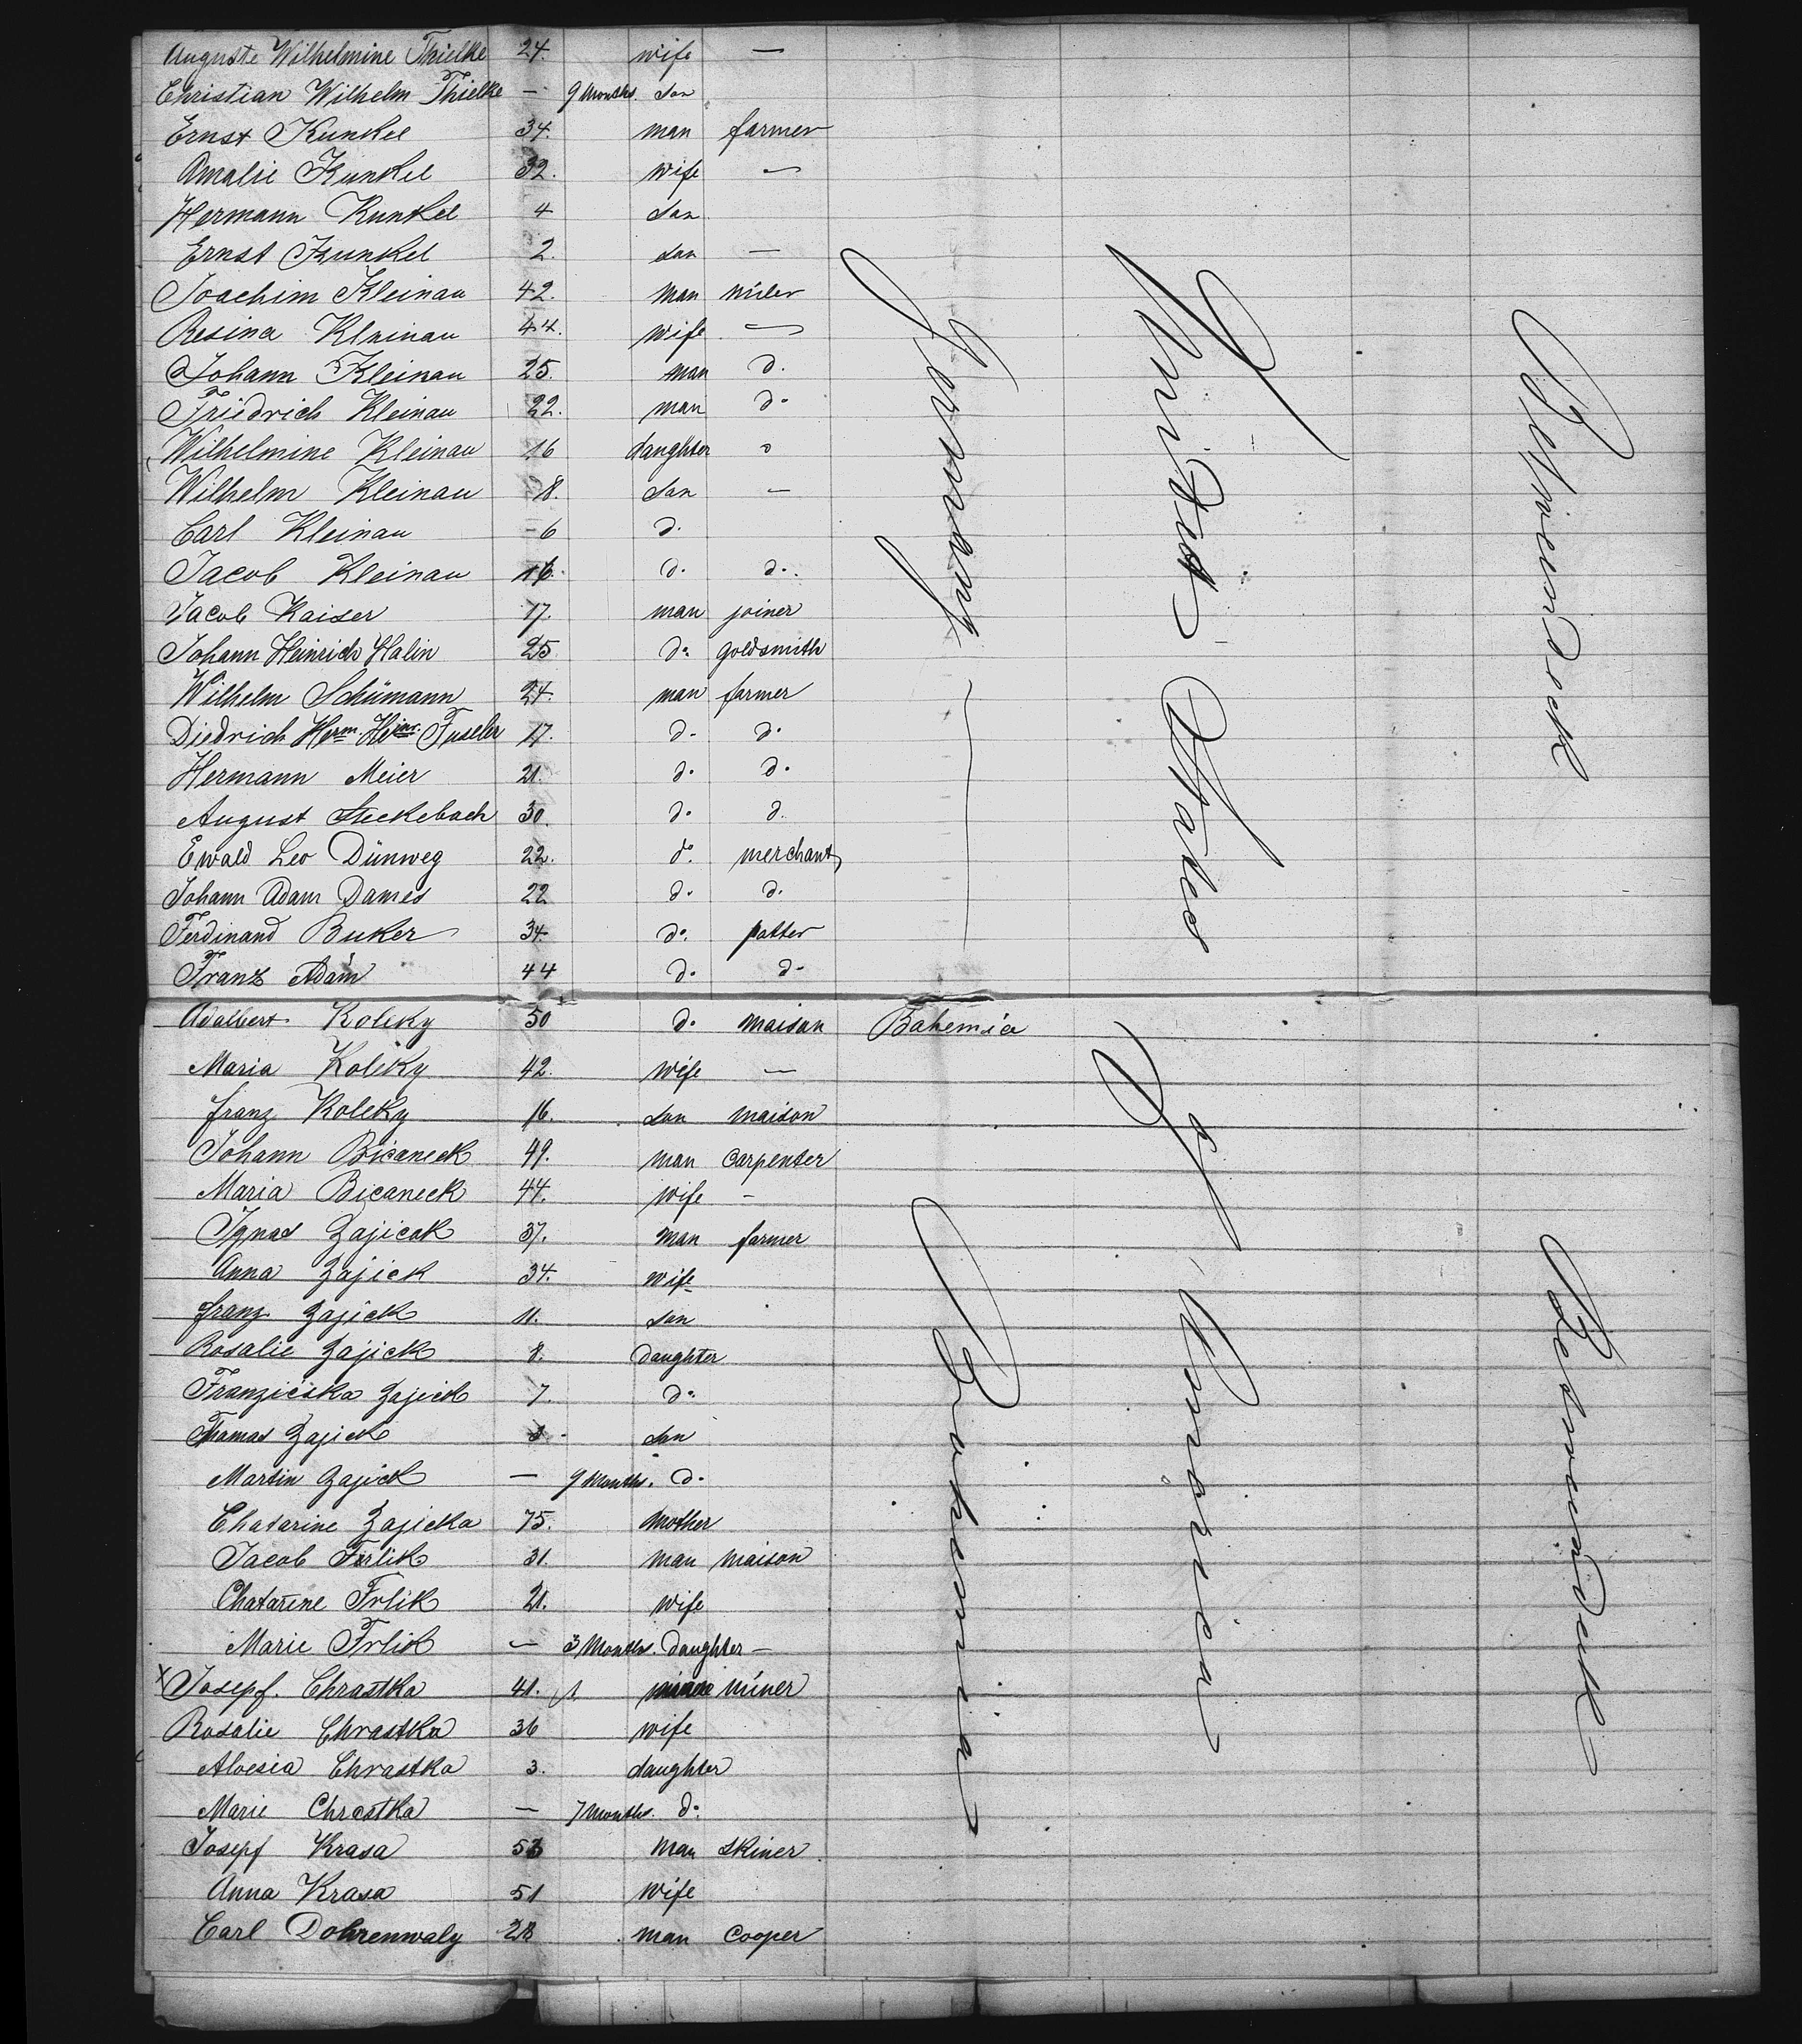 Auguste Wilhelmine Thielke 24. wife —
Christian Wilhelm Thielke — 9 Months. son
Ernst Kunkel 34. man farmer
Amalie Kunkel 32. wife —
Hermann Kunkel 4 son
Ernst Kunkel 2. son —
Joachim Kleinau 42. man miler
Resina Kleinau 44. wife —
Johann Kleinau 25. man d.
Friedrich Kleinau 22. man do
Wilhelmine Kleinau 16 daughter o
Wilhelm Kleinau 8. son —
Carl Kleinau 6 d.
Jacob Kleinau d. d.
Jacob Kaiser 17. man joiner
Johann Heinrich Halin 25 do goldsmith
Wilhelm Schümann 24. man farmer
Diedrich Herm. Heinr. Fuseler 17. d. do
Hermann Meier 21. do do
August Steckebach 30. do d.
Ewald Leo Dünweg 22. do merchant
Johann Adam Dames 22 do d.
Ferdinand Buker 34. do. potter
Franz Adam 44 do do
Germany
United States
Betwendeck
Adalbert Koleky 50 do maison Bahemia
Maria Koleky 42. wife —
franz Koleky 16. son maison
Johann Bicaneck 49. man carpenter
Maria Bicaneck 44. wife —
Ignas Zajicek 37. man farmer
Anna Zajick 34. wife
franz Zajick 11. son
Rosalie Zajick 8. daughter
Franziciska Zajick 7. do
Thomas Zajick son
Martin Zajick — 9 Months. d.
Chatarine Zajicka 75. mother
Jacob Frlik 31. man maison
Chatarine Frlik 21. wife
Marie Frlik — 3 Months. daughter —
x Josepf. Chrastka 41. miner
Rosalie Chrastka 36 wife
Aloesia Chrastka 3. daughter
Marie Chrastka — 7 Months. do.
Josepf Krasa 53 man skiner
Anna Krasa 51 wife
Carl Dohrenwaly 28 man cooper
Bohemia
of America
Betwendeck